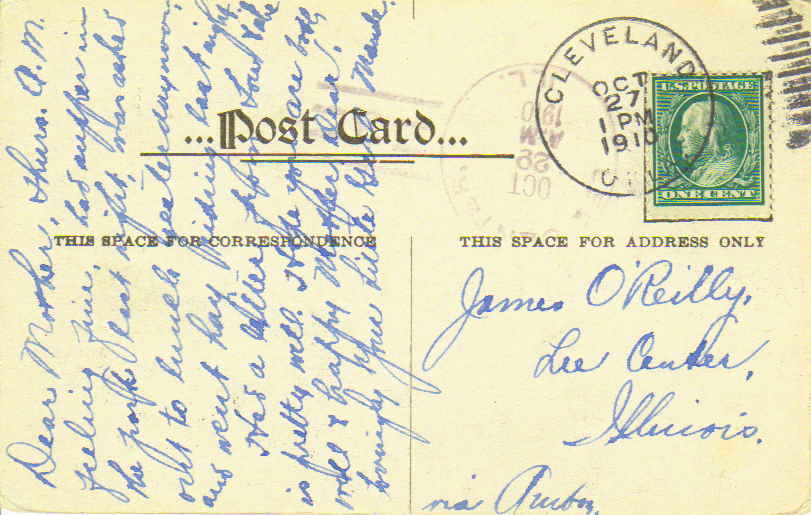 ...Post Card...
CLEVELAND
OCT
27
1 PM
1910
OHIO
U.S. POSTAGE
ONE CENT
OCT
29
AM
1910
THIS SPACE FOR CORRESPONDENCE
THIS SPACE FOR ADDRESS ONLY
Dear Mother, Thurs. A.M.
feeling fine, had supper in
the park last night, was asked
out to lunch yesterday noon,
and went hay riding last night
Had a letter from Lou. Babe
is pretty well. Hope you are both
well & happy Mother dear,
Lovingly your little girl Maude.
James O'Reilly,
Lee Center,
Illinois.
via Amboy.